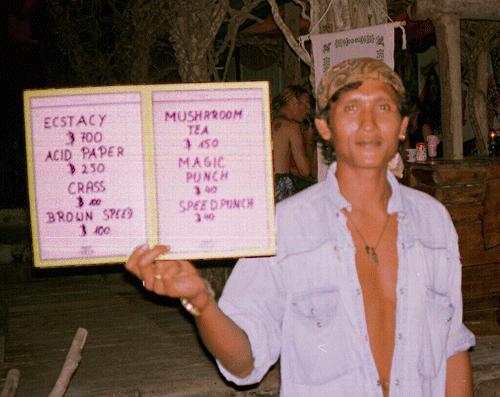 ECSTACY
$ 700
ACID PAPER
$ 250
CRASS
$ 100
BROWN SPEED
$ 100
MUSHRROOM
TEA
$ 150
MAGIC
PUNCH
$ 40
SPEED.PUNCH
$ 40